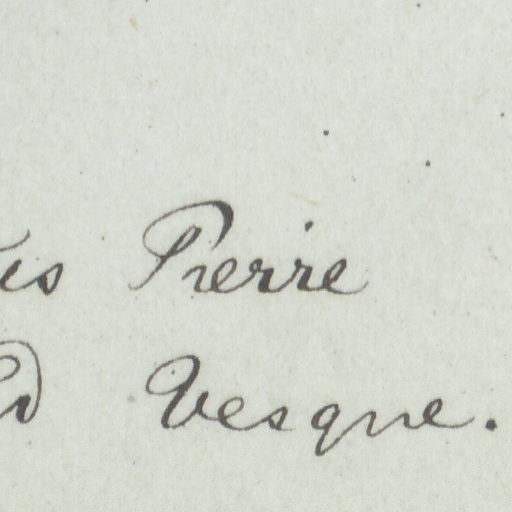 es Pierre
d Vesque.